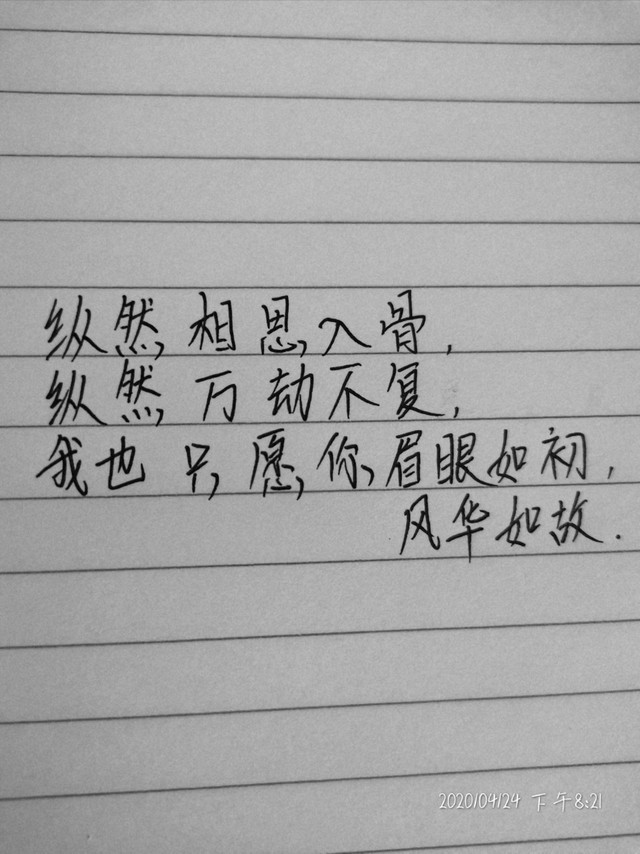 纵然相思入骨,
纵然万劫不复,
我也只愿你眉眼如初,
风华如故.
2020/04/24 下午8:21